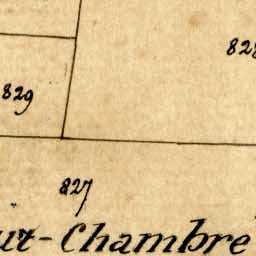 829
827
ut-Chambre